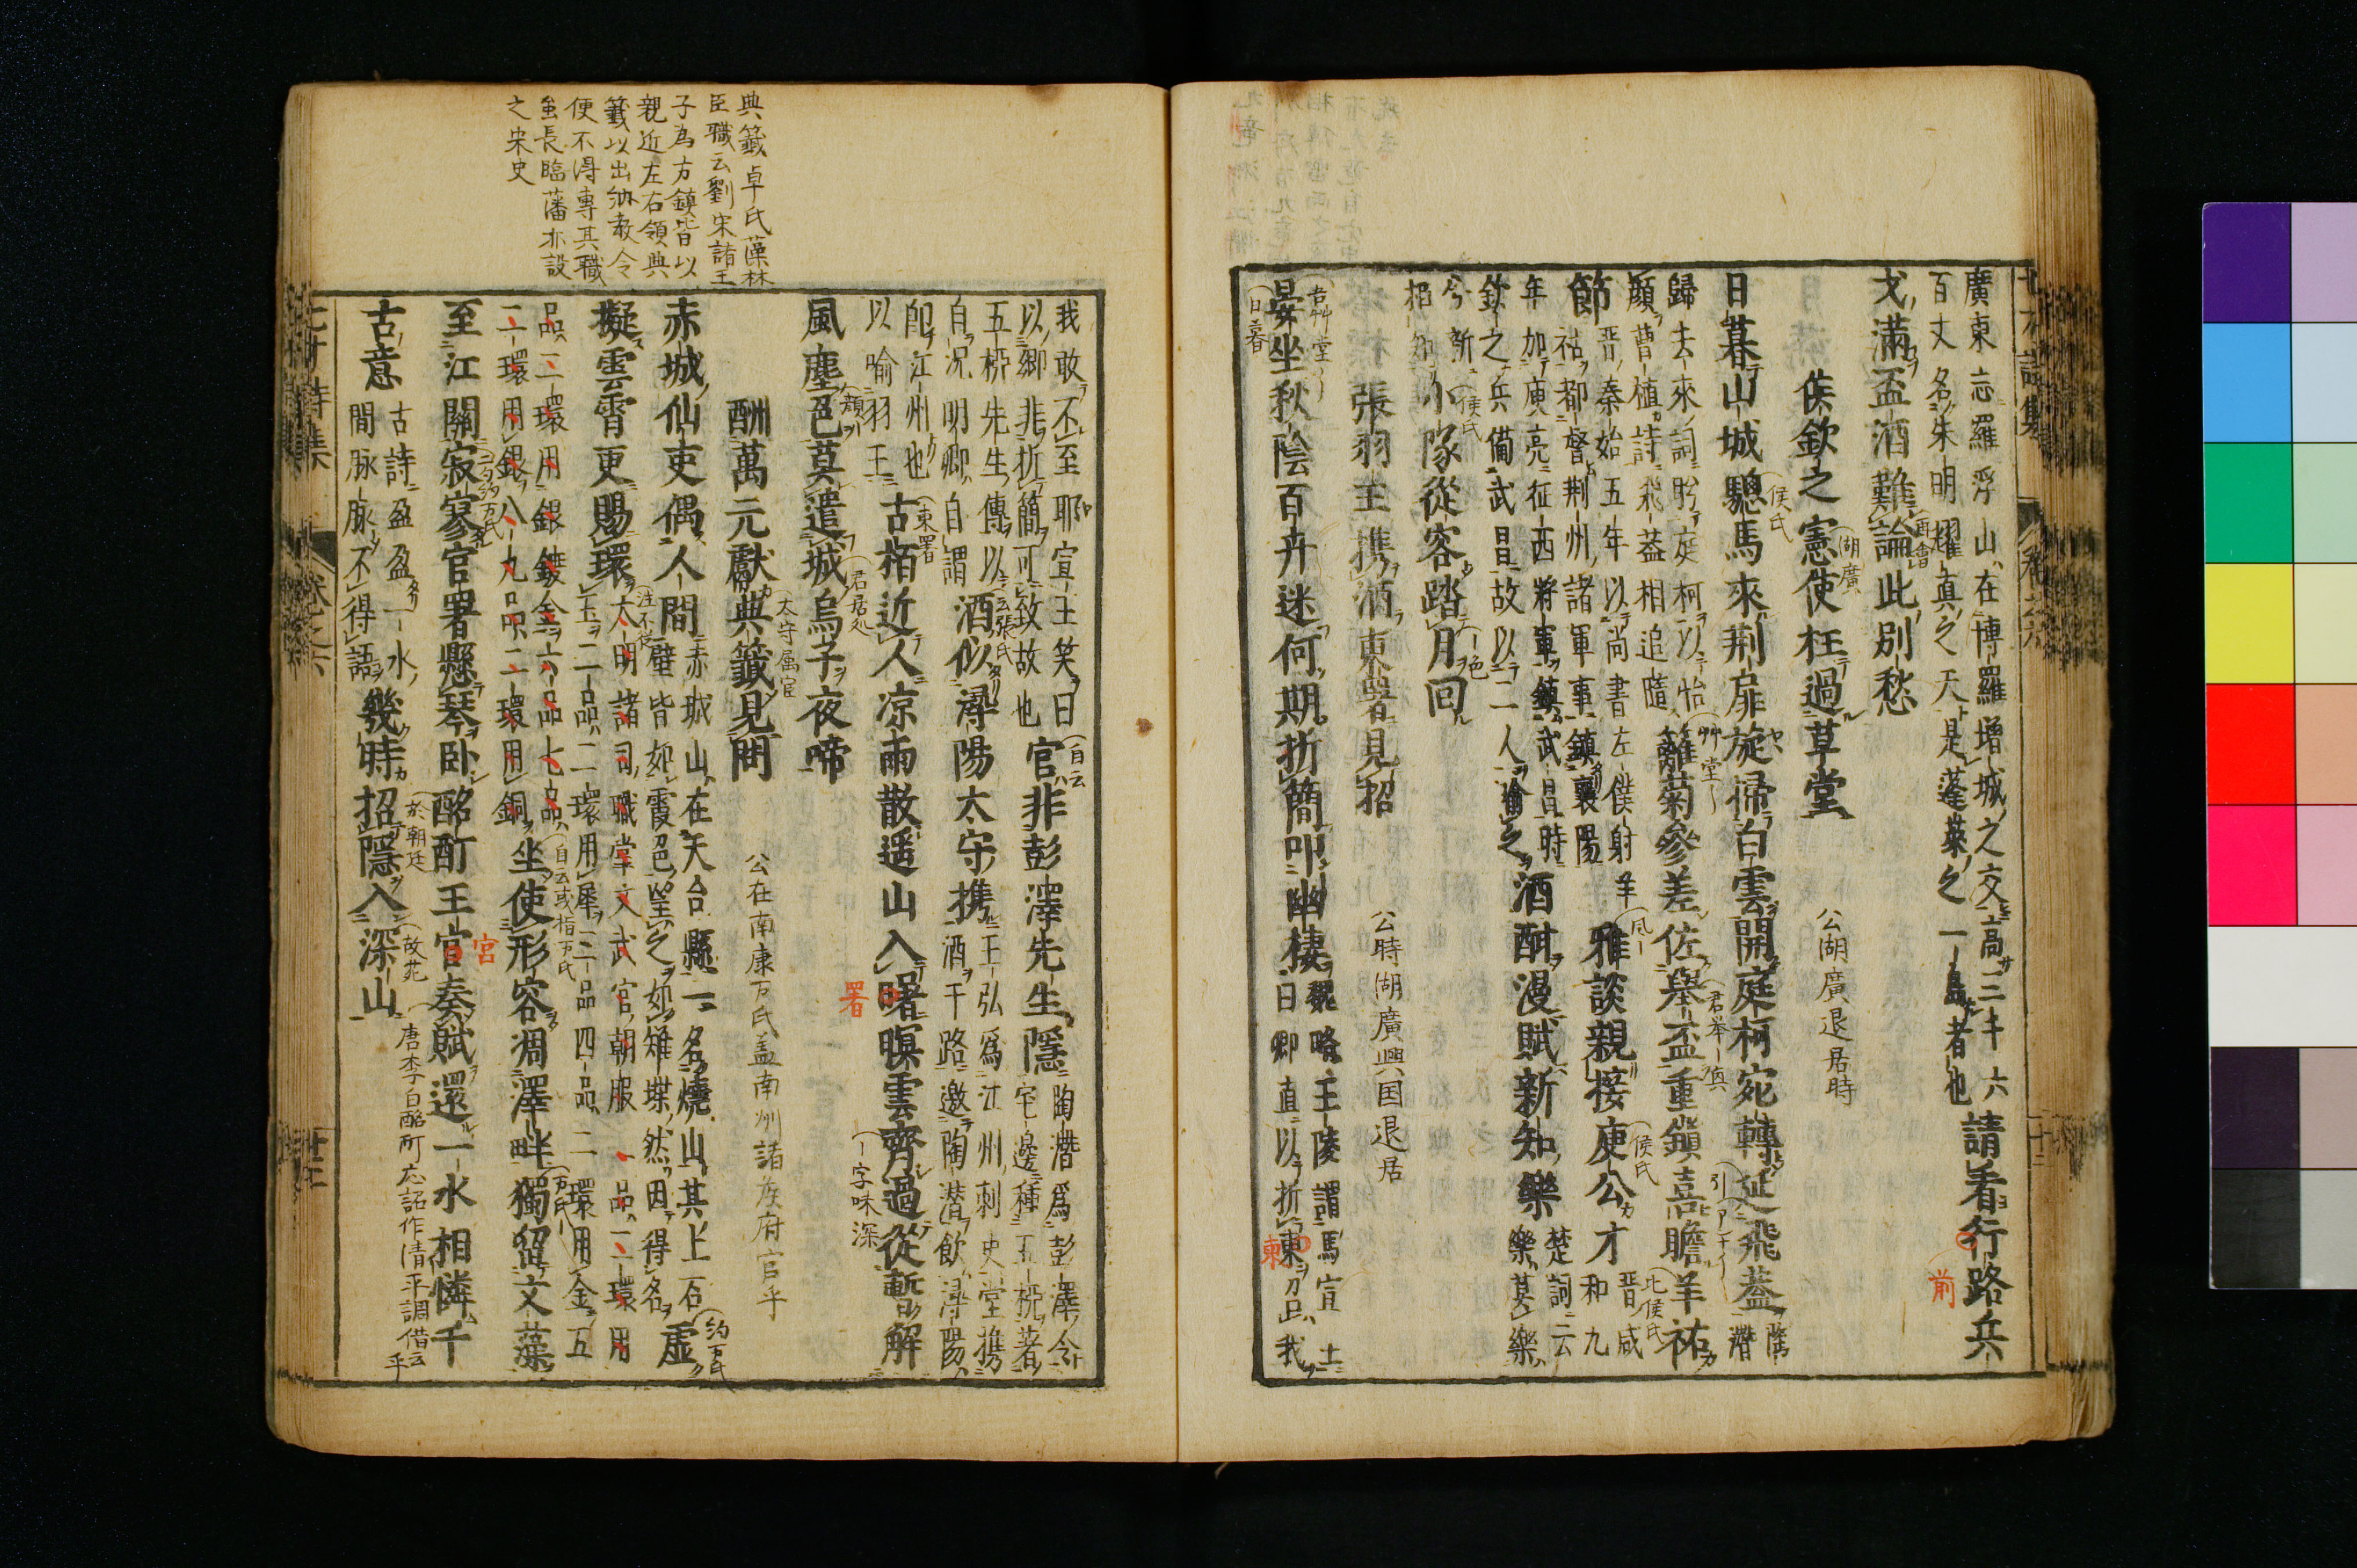 廣東志羅浮山在博羅增城之交高三千六
百丈名朱明耀真之天是蓬萊之一島者也
請看行路兵
戈滿盃酒難論此別愁
侯欽之憲使枉過草堂
公湖廣退居時
日暮山城驄馬來荆扉旋掃白雲開庭柯宛轉延飛蓋
陶潛
歸去來詞眄庭柯以怡
顏曹植詩飛蓋相追隨
籬菊參差佐舉盃重鎮喜瞻羊祜
晋秦始五年以尚書左僕射羊
祜都督荆州諸軍事鎮襄陽
節
雅談親接庾公才
晋咸和九
年加庾亮征西將軍鎮武昌時
欽之兵備武昌故以二人喻之
酒酣漫賦新知樂
楚詞云
樂莫樂
兮新
相知
小隊從容踏月回
張羽王携酒東署見招
公時湖廣興国退居
晏坐秋陰百卉迷何期折簡叩幽棲
魏略王陵謂馬宣王
曰卿直以折柬召我
我敢不至耶宣王笑曰
以卿非折簡可致故也
官非彭澤先生隱
陶潛爲彭澤令
宅邊種五栁著
五栁先生傳以
自況明卿自謂
酒似潯陽太守携
王弘爲江州刺史堂携
酒干路邀陶潛飲潯陽
卽江州也
以喻羽王
古栢近人凉雨散遥山入曙暝雲齊過從暫解
風塵色莫遣城烏子夜啼
酬萬元獻典籤見問
公在南康万氏盖南州諸族府官乎
赤城仙吏偶人間
赤城山在天台縣一名燒山其上石
壁皆如霞色望之如雉堞然因得名
虚
擬雲霄更賜環
太明諸司職掌文武官朝服一品二環用
玉二品二環用犀三品四品二環用金五
品二環用銀鍍金六品七品
二環用銀八九品二環用銅
坐使形容凋澤畔獨留文藻
至江關寂寥官署懸琴卧酩酊王官奏賦還一水相憐千
古意
古詩盈盈一水
間脉脉不得語
幾時招隱入深山
唐李白酩酊応詔作清平調借云乎
典籤卓氏藻林
臣職云劉宋諸王
子為方鎮皆以
親近左右領典
籤以出納教令
便不得專其職
雖長臨藩亦設
之宋史